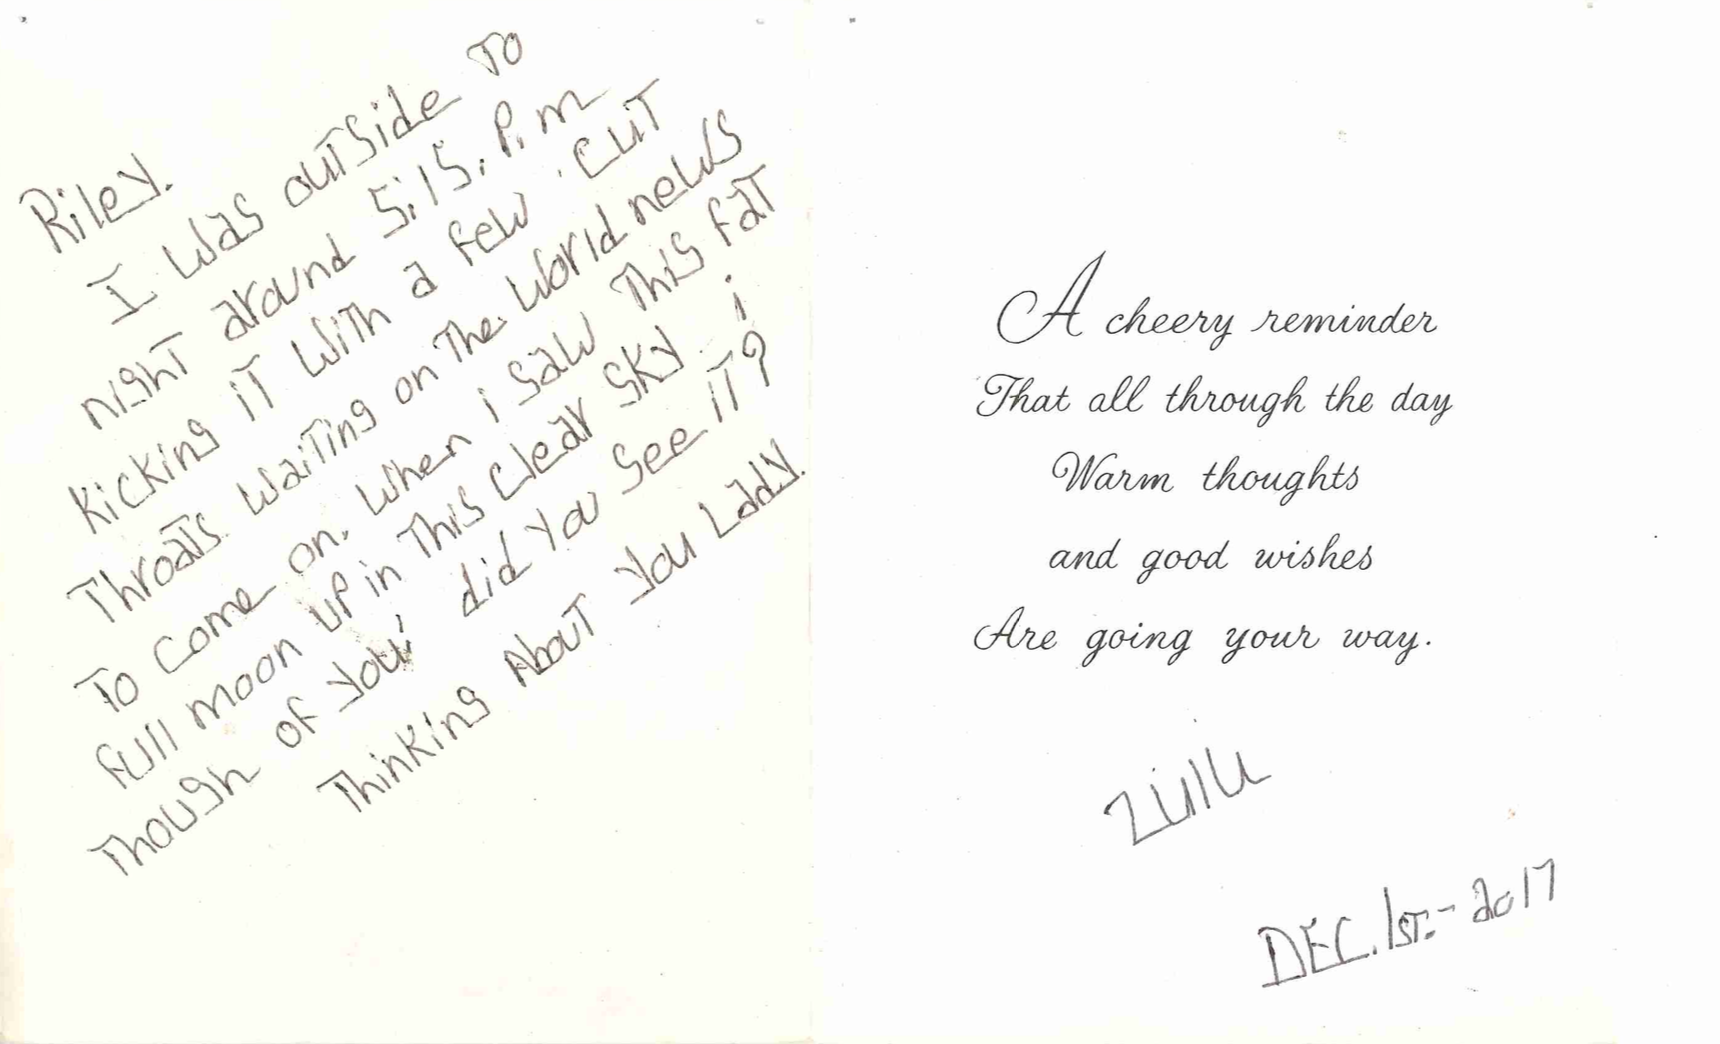 Riley.
I was outside to
night around 5:15. P.m
kicking it with a few cut
throats waiting on the world news
to come on. when i saw this fat
full moon up in this clear sky. i
though of you! did you see it?
Thinking About you Lady.
A cheery reminder
That all through the day
Warm thoughts
and good wishes
Are going your way.
Zulu
DEC. 1st.- 2017